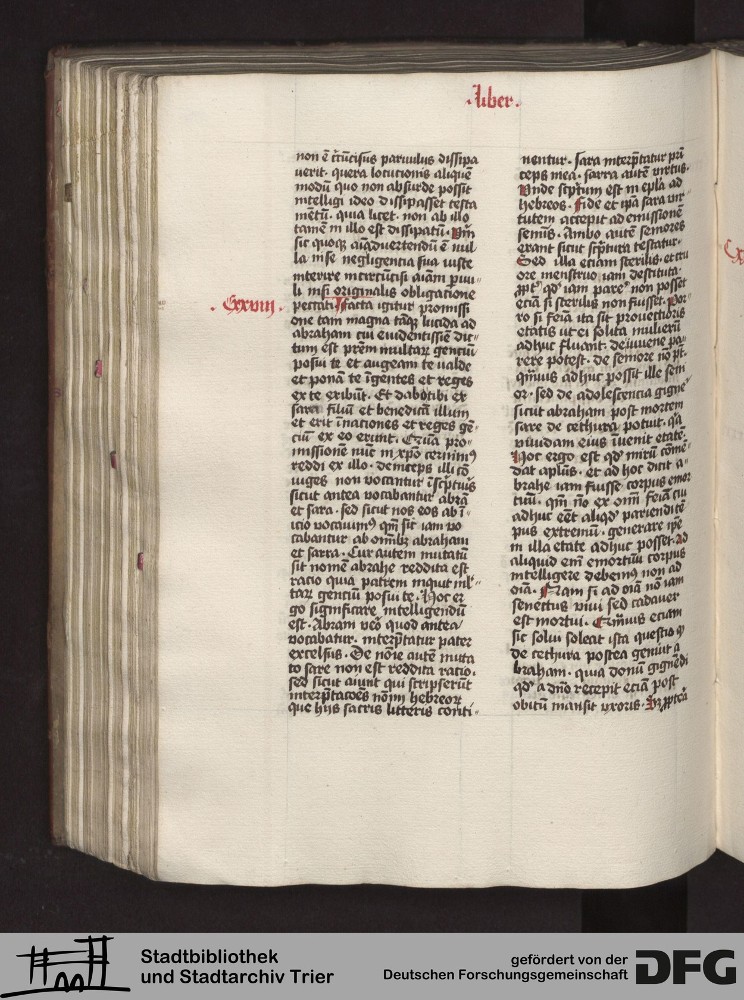 liber
non ē circūcisus paruulus dissipa
uerit. quera locutionis aliquē
modū quo non absurde possit
intelligi ideo dissipasset testa
mētū. quia licet non ab illo
tamē in illo est dissipatū. Vm̄
sic quoqꝫ aīaduertendū ē nul
la in se negligentia sua iuste
interire incircūcisī aīam puu-
li. nisi originalis obligatione
Cxxviij.
peccati. Facta igitur promissi
one tam magna tāqꝫ lucida ad
abraham cui euidentissīe dic-
tum est prēm multaꝝ gentiū
posui te et augeam te ualde
et ponā te ī gentes et reges
ex te exibūt. Et dabo tibi ex
sara filiū et benedicā illum
et erit ī nationes et reges gē-
ciū ex eo erunt. Quā pro-
missionē nūc in xp̄o cernimꝰ
reddi ex illo. deinceps illi cō
iuges non uocantur ī sc̄pturis
sicut antea uocabantur abrā
et sara. sed sicut nos eos ab ī-
icio uocauimꝰ qm̄ sic iam uo
cabantur ab om̄ibꝫ abraham
et sarra. Cur autem mutatū
sit nomē abrahe reddita est
ratio quia patrem inquit ml̄-
taꝝ gentiū posui te. Hoc er
go significare intelligendū
est. Abram uero quod antea
uocabatur. interp̄tatur pater
excelsus. De noīe autē muta
to sare non est reddita ratio.
sed sicut aiunt qui scripserūt
interp̄tacōes noīm hebreoꝝ
que hijs sacris litteris conti-
nentur. Sara interp̄tatur prī
ceps mea. sarra autē uirtus.
Vnde sc̄ptum est in epl̄a ad
hebreos. Fide et ip̄a sara uir
tutem accepit ad emissionē
semīs. Ambo autē seniores
erant sicut sc̄ptura testatur.
Sed illa etiam sterilis. et cru
ore menstruo iam destituta.
ꝓpt̄ qd̓ iam parē non posset
eciā si sterilis non fuisset. Por-
ro si feīa ita sit prouectioris
etatis ut ei solita mulierū
adhuc fluant. de iuuene pa-
rere potest. de seniore nō pt̄.
qm̄uis adhuc possit ille seni
or. sed de adolescencia gigne
sicut abraham post mortem
sare de cethura potuit. q̄a
uiuidam eius īuenit etatē.
Hoc ergo est qd̓ mirū cōmē-
dat apl̄us. et ad hoc dicit a-
brahe iam fuisse corpus emor
tuū. qm̄ nō ex om̄i feīa cui
adhuc eēt aliqd̓ pariendi tē
pus extremū. generare ip̄e
in illa etate adhuc posset. Ad
aliquid enī emortuū corpus
intelligere debemꝰ non ad
oīa. Nam si ad oīa nō iam
senectus uiui sed cadauer
est mortui. Qm̄uis etiam
sic solui soleat ista questio qꝫ
de cethura postea genuit a
braham. quia donū gignēdi
qd̓ a dn̄o recepit eciā post
obitū mansit uxoris. Sꝫ ꝓpt̄ea
Stadtbibliothek
und Stadtarchiv Trier
gefördert von der
Deutschen Forschungsgemeinschaft
DFG